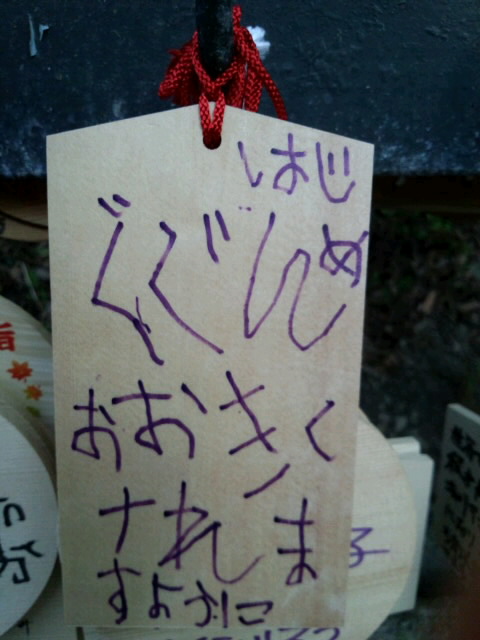 はじ
ぐぐんめ
おおきく
ナれま
すように
子